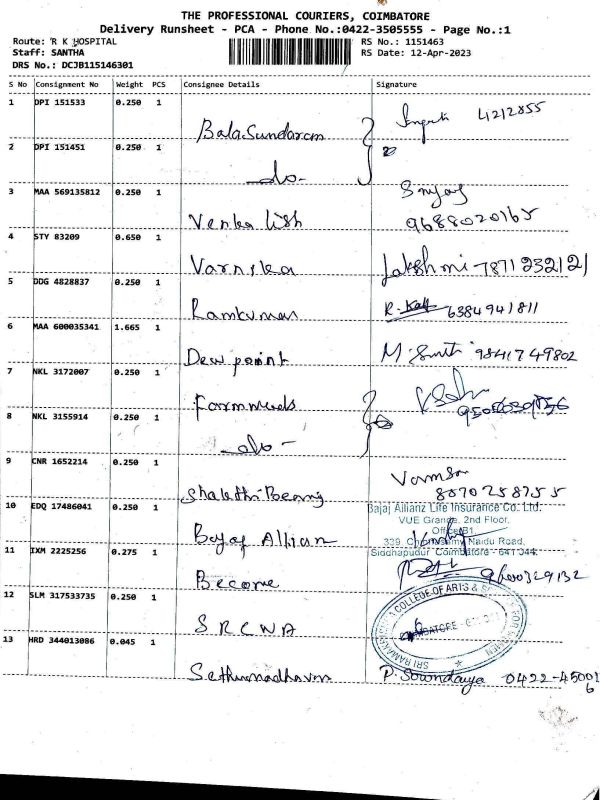 THE PROFESSIONAL COURIERS, COIMBATORE
Delivery Runsheet - PCA - Phone No.:0422-3505555 - Page No.:1
Route: R K HOSPITAL RS No.: 1151463
Staff: SANTHA RS Date: 12-Apr-2023
DRS No.: DCJB115146301
S No Consignment No Weight PCS Consignee Details Signature
1 DPI 151533 0.250 1
Bala Sundaram 4212855
2 DPI 151451 0.250 1
do-
3 MAA 569135812 0.250 1
9688020165
4 STY 83209 0.650 1
Varnika Lakshmi 7871232121
5 DDG 4828837 0.250 1
Ramkumar 6384941811
6 MAA 600035341 1.665 1
Dew point M. Smith 9841749802
7 NKL 3172007 0.250 1
8 NKL 3155914 0.250 1
do-
9 CNR 1652214 0.250 1
Shakthi Bearing 8870258755
10 EDQ 17486041 0.250 1
Bajaj Allianz Life Insurance Co. Ltd.
VUE Grande, 2nd Floor,
Bajaj Allian
339, Chinnasamy Naidu Road,
Siddhapudur Coimbatore - 641 044.
11 IXM 2225256 0.275 1
Become 9600329132
12 SLM 317533735 0.250 1
SRCWA
13 HRD 344013086 0.045 1
P. Soundarya 0422-45001
6